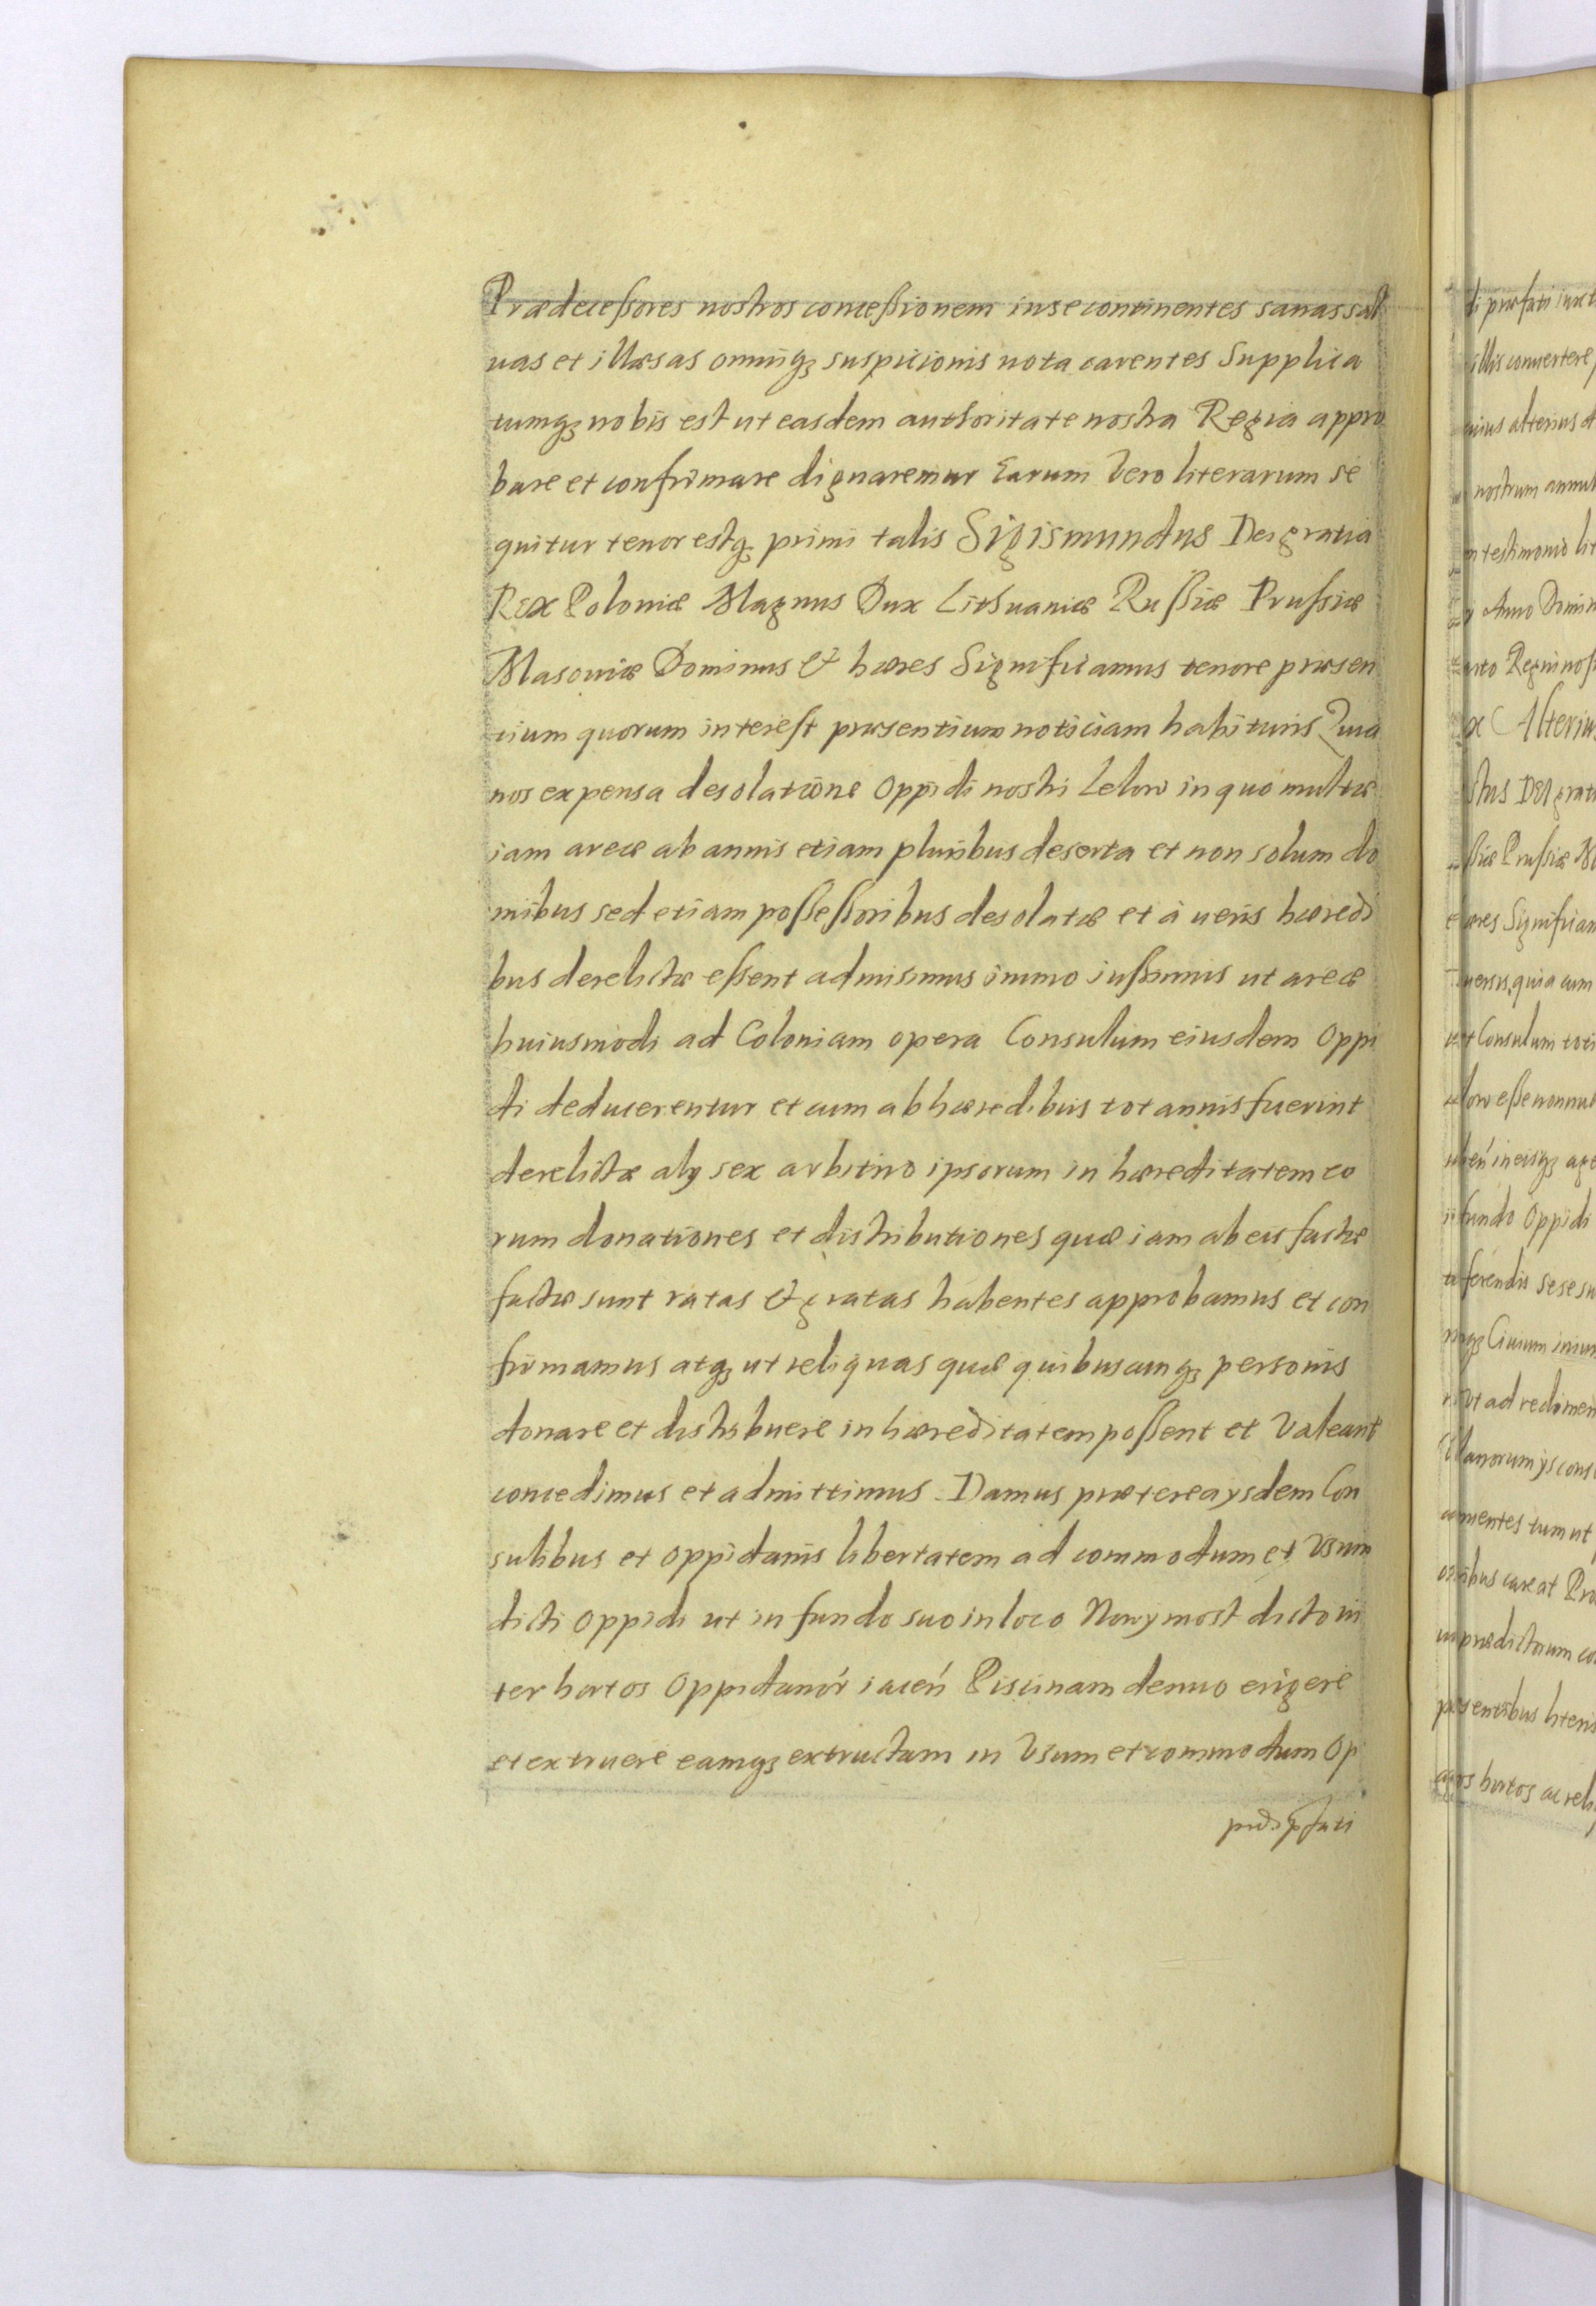 Prædeceßores nostros conceßionem in se continentes sanas sal
uas et illæsas omniqꝫ suspicionis nota carentes Supplica
tumqꝫ nobis est ut easdem authoritate nostra Regia appro
bare et confirmare dignaremur Earum Vero literarum se
quitur tenor estqꝫ primi talis Sigismundus Dei gratia
Rex Poloniæ Magnus Dux Lithuaniæ Rußiæ Prußiæ
Masouiæ Dominus & hæres Significamus tenore præsen
tium quorum interest præsentium noticiam habituris Quia
nos expensa desolatione Oppidi nostri Lelow in quo multæ
iam areæ ab annis etiam pluribus deserta et non solum do
mibus sed etiam poßeßoribus desolatæ et à ueris hæredi
bus derelictæ eßent admisimus immo iußimus ut areæ
huiusmodi ad Coloniam opera Consulum eiusdem Oppi
di deducerentur et cum ab hæredibus tot annis fuerint
derelictæ alys ex arbitrio ipsorum in hæreditatem eo
rum donationes et distributiones quæ iam ab eis factæ
factæ sunt ratas & gratas habentes approbamus et con
firmamus atqꝫ ut reliquas quæ quibuscunqꝫ personis
donare et distribuere in hæreditatem poßent et Valeant
concedimus et admittimus Damus præterea ysdem Con
sulibus et oppidanis libertatem ad commodum et Vsum
dicti Oppidi ut in fundo suo in loco Nowymost dicto in
ter hortos Oppidanor̄ iaceń Piscinam denuo erigere
et extruere eamqꝫ extructam in Vsum et commodum Op
pidi p̃fati
di præfati
illis conuertere
nius alterius
nostrum
testimonio lit
Anno Domin
Regni nost
Alterius
DEI grati
ßiæ Prußiæ M
æres Significam
uersis quia cum
Consulum
low eße nonnul
fundo Oppidi
ferendis sese su
Ciuium
ut ad redimen
ys cons
mentes tum ut
ibus careat Pro
prædictorum
præsentibus literis
hortos ac reli